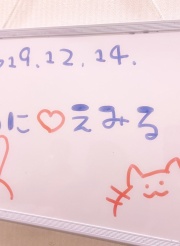 19.12.14.
に♡えみる